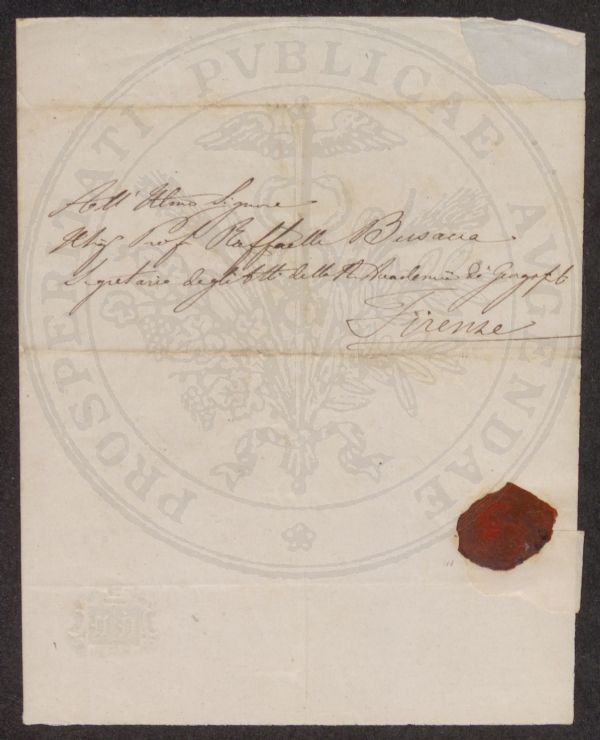 PROSPERITATI PVBLICAE AVGENDAE
All' Illmo Signore
Prof Raffaelle Busacca
Segretario degli Atti della R. Accademia dei Georgofili
Firenze